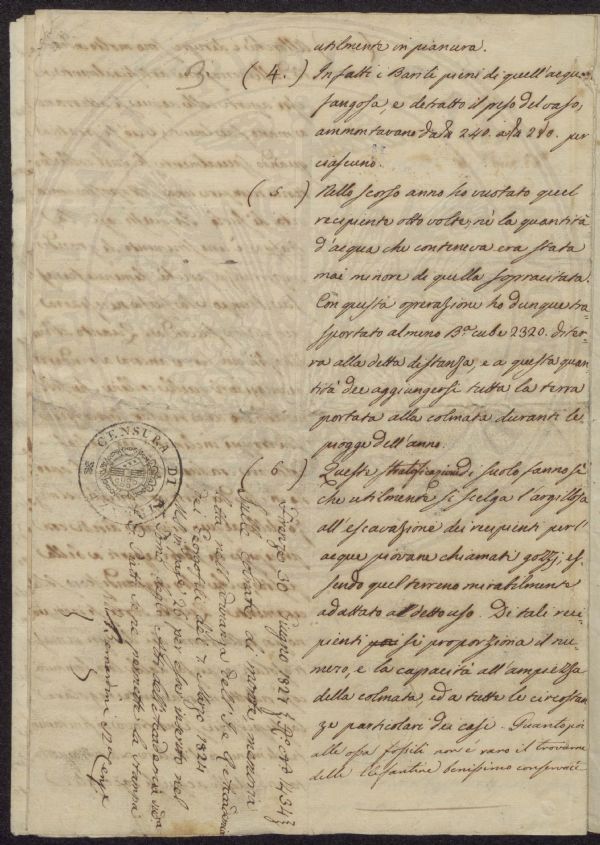 3
utilmente in pianura.
(4.) Infatti i Barili pieni di quell'acqua
fangosa, e detratto il peso del vaso,
ammontavano da 240. a 280. per
ciascuno.
(5) Nello scorso anno ho vuotato quel
recipiente otto volte; nè la quantità
d'acqua che conteneva era stata
mai minore di quella sopracitata.
Con questa operazione ho dunque tra-
sportato almeno B.a cube 2320. di ter-
ra alla detta distanza, e a questa quan-
tità dee aggiungersi tutta la terra
portata alla colmata duranti le
piogge dell'anno.
(6) Queste stratificazioni di suolo fanno sì
che utilmente si scelga l'argillosa
all'escavazione dei recipienti per l'
acque piovane chiamati gozzi, es-
sendo quel terreno mirabilmente
adattato al detto uso. Di tali reci-
pienti poi si proporziona il nu-
mero, e la capacità all'ampiezza
della colmata, ed a tutte le circostan-
ze particolari dei casi. Quanto poi
alle ossa fossili non è raro il trovarne
delle Elefantine benissimo conservate
CENSURA DI
Firenze 30 Giugno 1824
Sulle Colmate di monte, memoria
letta nell'adunanza dell'I. e R. Accademia
dei Georgofili del 7 Marzo 1824
del mare 26 per esser inserito nel
degli Atti dell'Accademia
se ne permette la stampa